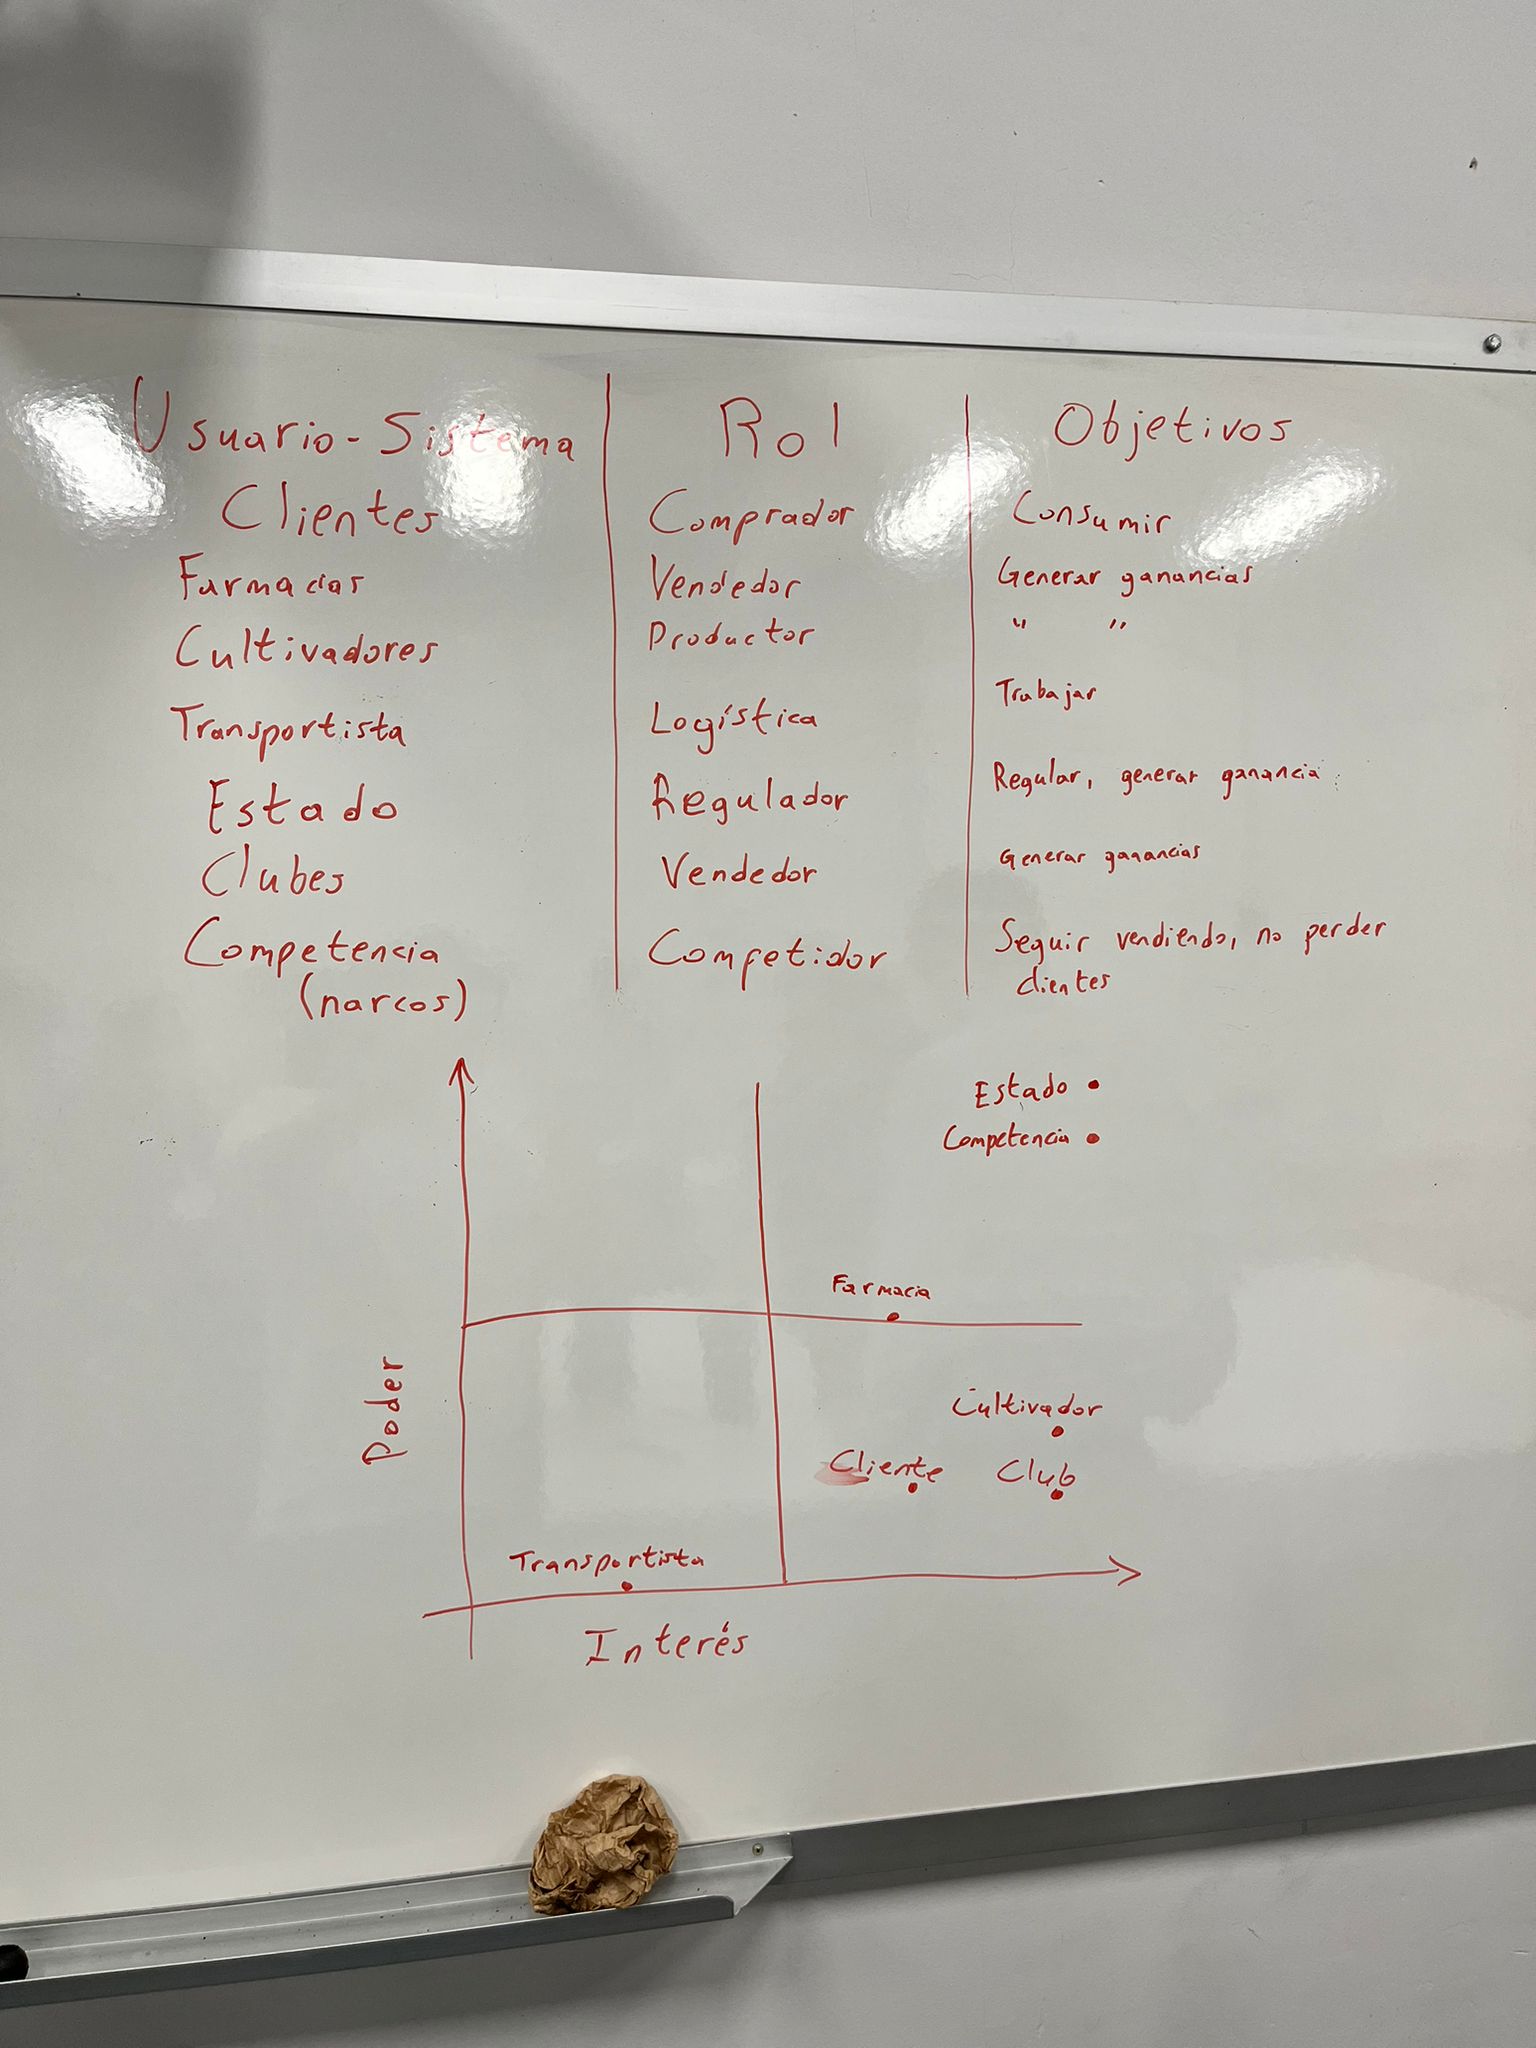 Usuario-Sistema Rol Objetivos
Clientes Comprador Consumir
Farmacias Vendedor Generar ganancias
Cultivadores Productor " "
Transportista Logística Trabajar
Estado Regulador Regular, generar ganancia
Clubes Vendedor Generar ganancias
Competencia Competidor Seguir vendiendo, no perder
(narcos) clientes
Estado
Competencia
Farmacia
Poder
Cultivador
Cliente Club
Transportista
Interés